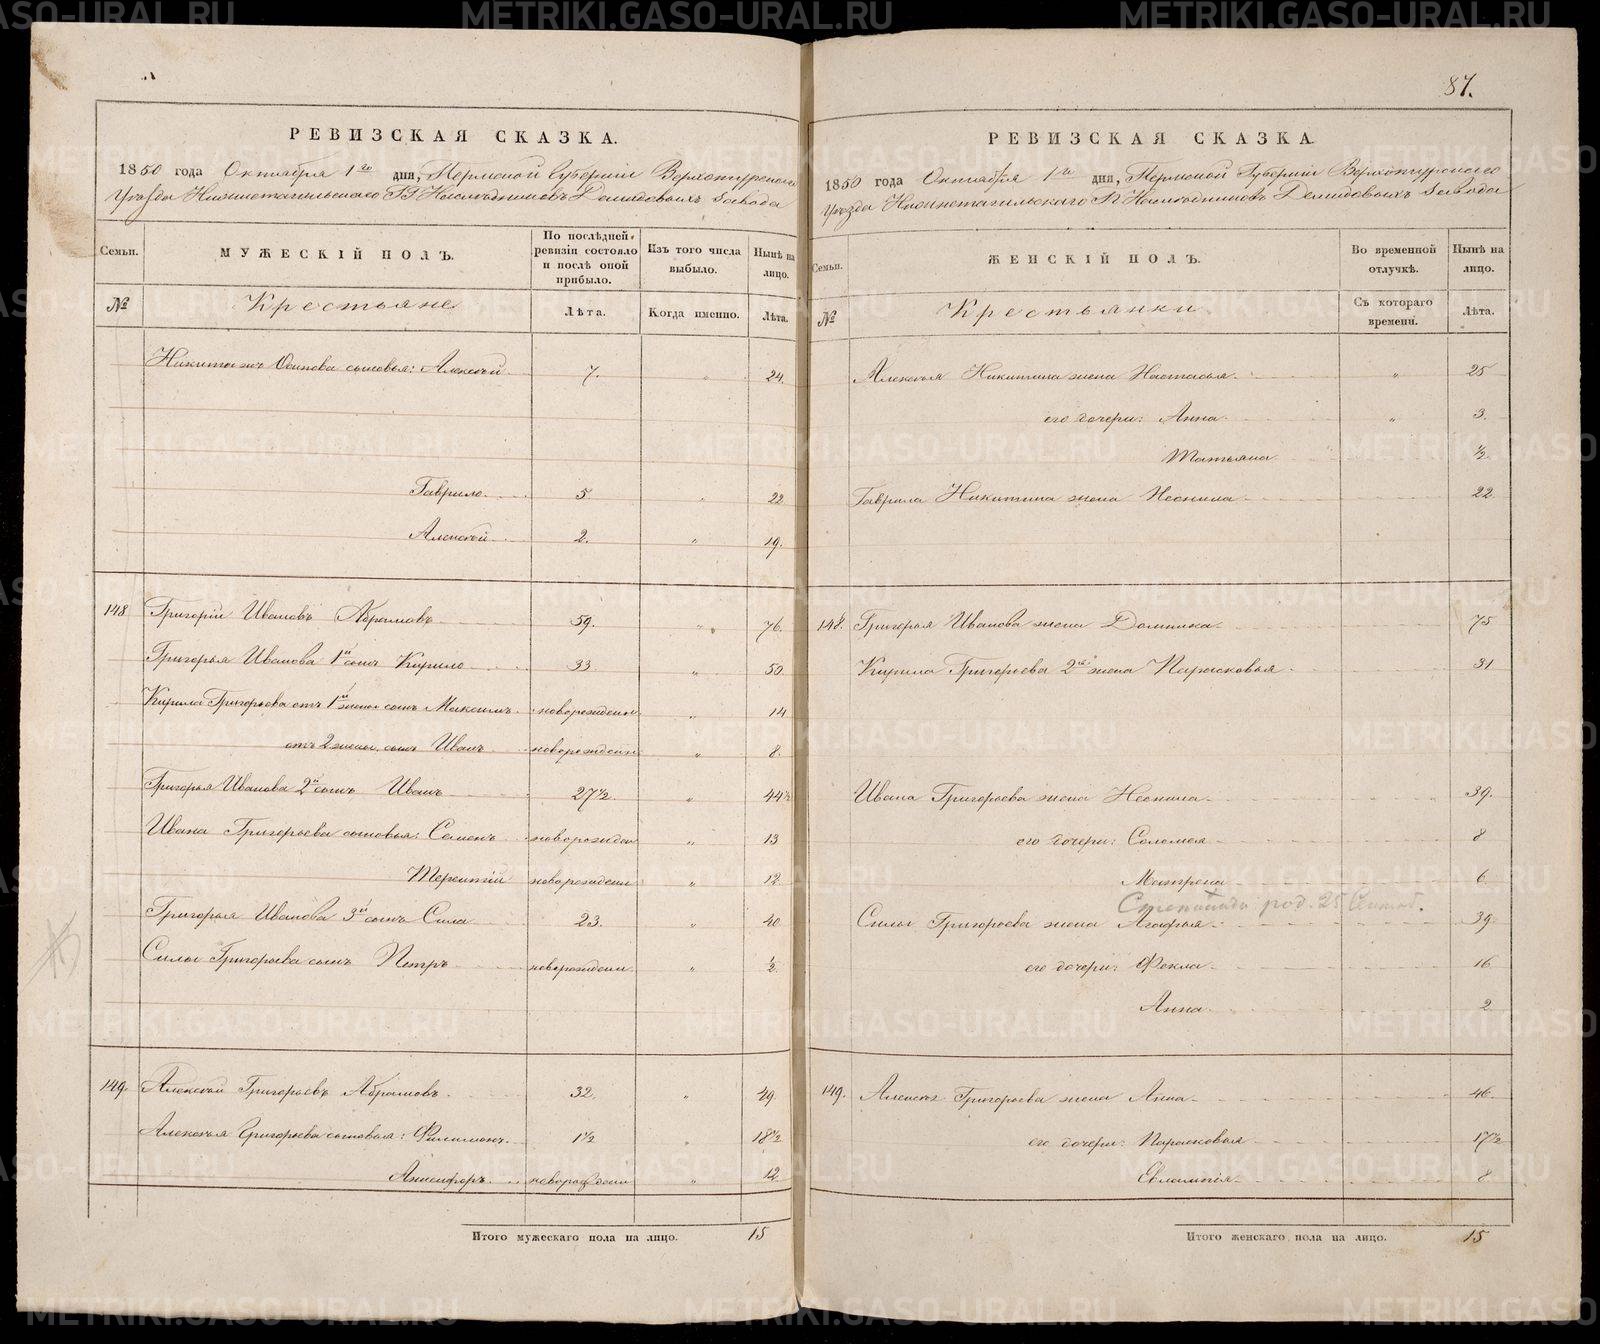 87.
РЕВИЗСКАЯ СКАЗКА.
1850 года Октября 1го дня, Пермской Губерніи Верхотурскаго
Уѣзда Нижнетагильскаго Гг. Наслѣдниковъ Демидовыхъ завода
Семьи.
МУЖЕСКІЙ ПОЛЪ.
По послѣдней ревизіи состояло и послѣ оной прибыло.
Изъ того числа выбыло.
Нынѣ на лицо.
№ Крестьяне Лѣта. Когда именно. Лѣта.
Никиты Осипова сыновья: Алексѣй 7. „ 24.
Гаврило 5 „ 22
Алексѣй 2. „ 19.
148 Григорій Ивановъ Абрамовъ 59. „ 76.
Григорья Иванова 1й сынъ Кирило 33 „ 50.
Кирила Григорьева отъ 1й жены сынъ Максимъ новорожден „ 14
отъ 2 жены сынъ Иванъ новорожден „ 8.
Григорья Иванова 2й сынъ Иванъ 27½ „ 44½
Ивана Григорьева сыновья: Семенъ новорожден „ 13
Терентій новорожден „ 12
Григорья Иванова 3й сынъ Сила 23. „ 40
Силы Григорьева сынъ Петръ новорожден „ ½
149. Алексѣй Григорьевъ Абрамовъ 32. „ 49
Алексѣя Григорьева сыновья: Филимонъ 1½ „ 18½
Анисифоръ новорожден „ 12
Итого мужескаго пола на лицо. 15
РЕВИЗСКАЯ СКАЗКА.
1850 года Октября 1го дня, Пермской Губерніи Верхотурскаго
Уѣзда Нижнетагильскаго Гг. Наслѣдниковъ Демидовыхъ завода
Семьи.
ЖЕНСКІЙ ПОЛЪ.
Во временной отлучкѣ.
Нынѣ на лицо.
№ Крестьянки Съ котораго времени. Лѣта.
Алексѣя Никитина жена Настасья „ 25
его дочери: Анна „ 3.
Татьяна ½
Гаврила Никитина жена Неонила 22
148. Григорья Иванова жена Домника 75
Кирила Григорьева 2я жена Парасковья 31
Ивана Григорьева жена Неонила 39.
его дочери: Соломея 8
Матрена 6
Степанида род. 25 Сентяб.
Силы Григорьева жена Агафья 39.
его дочери: Фекла 16
Анна 2
149. Алексѣя Григорьева жена Анна 46
его дочери: Парасковья 17½
Евлампія 8
Итого женскаго пола на лицо. 15
METRIKI.GASO-URAL.RU